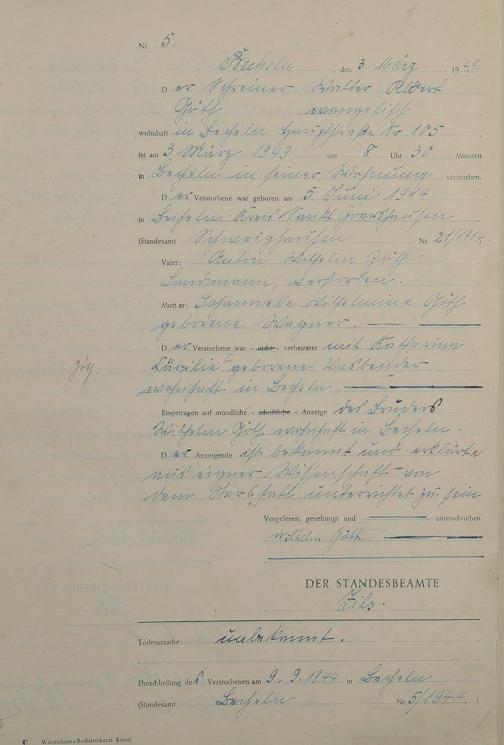 Nr. 5.
Becheln, den 3. März 1949.
Der Schreiner Walter Albert
Göth evangelisch
wohnhaft in Becheln Hauptstraße Nr 105
ist am 3. März 1949 um 8 Uhr 30 Minuten
in Becheln in seiner Wohnung verstorben.
Der Verstorbene war geboren am 5. Juni 1914
in Becheln Kreis Sankt Goarshausen
(Standesamt Schweighausen Nr. 21/1914.
Vater: Anton Wilhelm Göth
Landmann, verstorben.
Mutter: Johannette Wilhelmine Göth
geborene Wagner.
Der Verstorbene war - nicht - verheiratet mit Katharina
Cäcilie geborene
wohnhaft in Becheln.
Göth.
Eingetragen auf mündliche - schriftliche - Anzeige des Bruders
Wilhelm Göth wohnhaft in Becheln.
Der Anzeigende ist bekannt und erklärte
aus eigner Wissenschaft von
dem Sterbfall unterrichtet zu sein
Vorgelesen, genehmigt und unterschrieben
Wilhelm Göth
DER STANDESBEAMTE
Todesursache: unbekannt.
Eheschließung des Verstorbenen am 9. 9. 1944 in Becheln
(Standesamt Becheln Nr. 5/1944.)